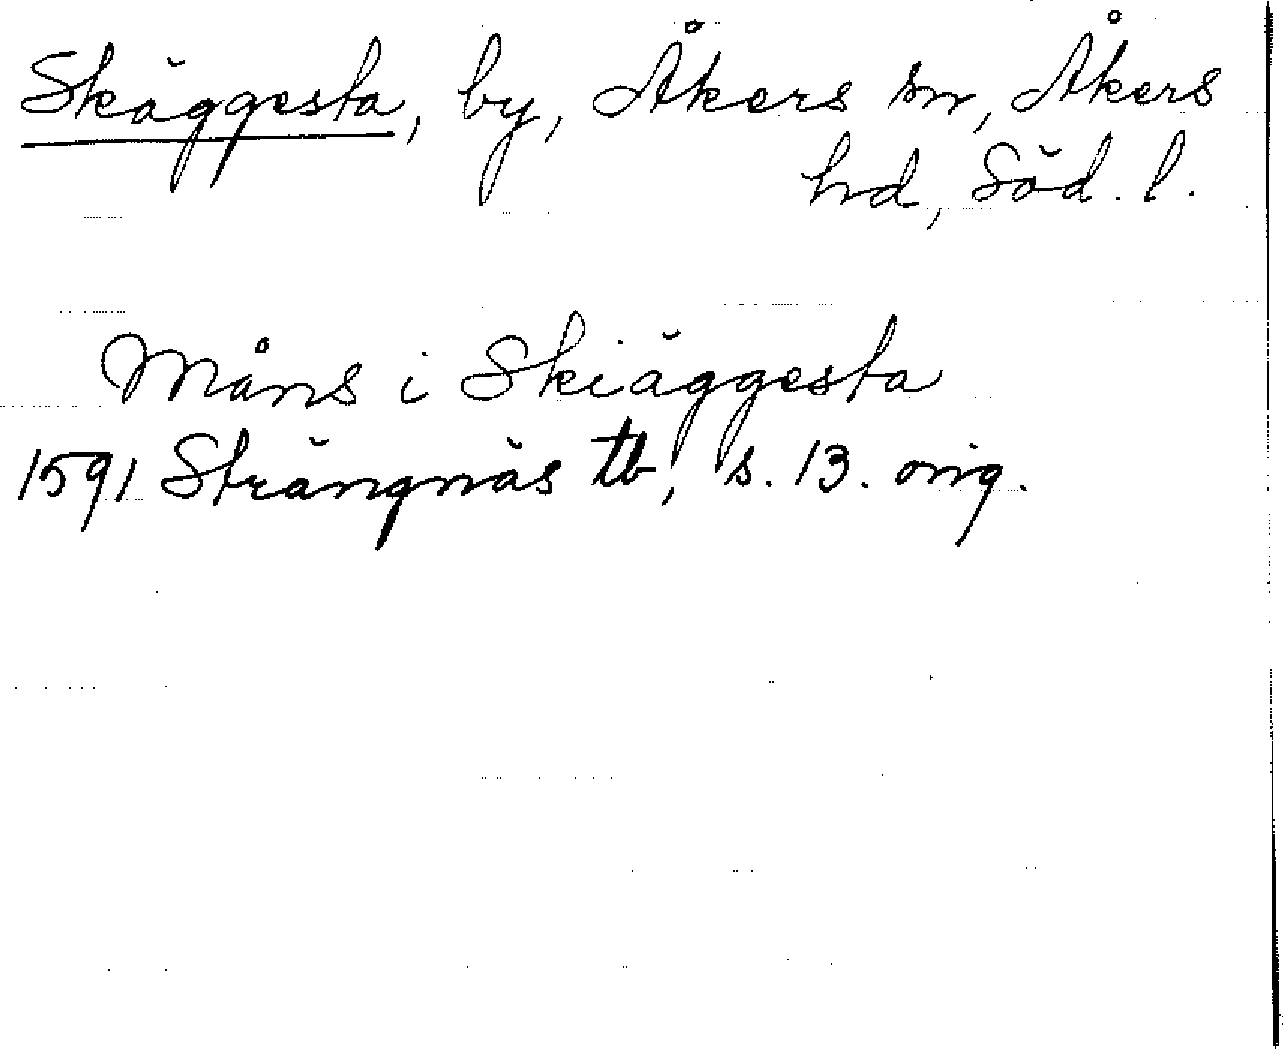 Skäggesta, by, Åkers sn, Åkers
hd, Söd. l.
Måns i Skiäggesta
1591 Strängnäs tb, s. 13. orig.